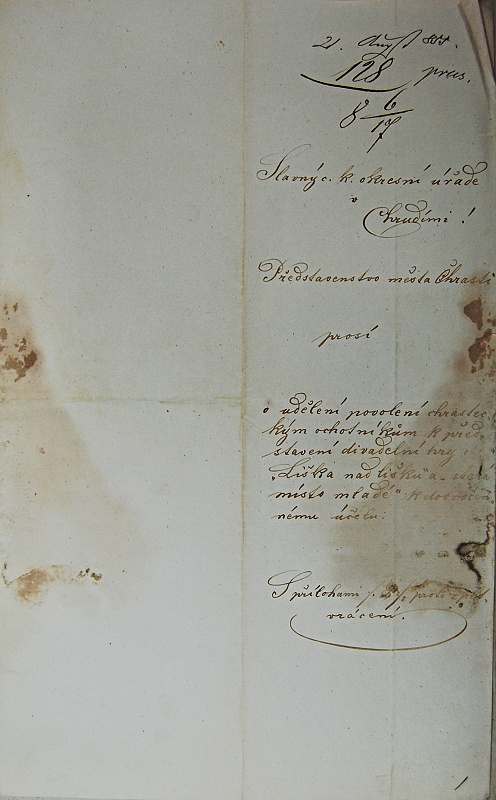 21. Aug 855.
128 praes.
8 6/17
Slavný c. k. okresní úřade
v
Chrudimi!
Představenstvo města Chrasti
prosí
o udělení povolení chrastec-
kým ochotníkům k před-
stavení divadelní hry
„Liška nad lišku" a
místo mladé" k dobročin
nému účelu.
S přílohami proti
vrácení.
1